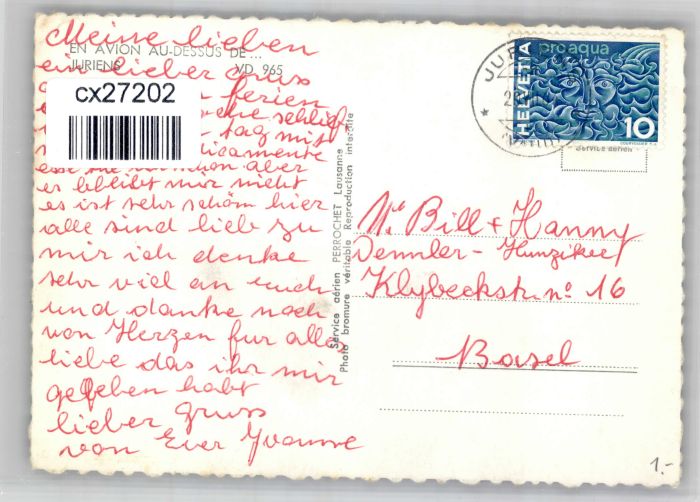 Meine lieben
EN AVION AU-DESSUS DE...
ein lieber gruss
JURIENS VD 965
ferien
cx27202
schlief
tag mit
aber
es bleibt mir nicht
es ist sehr schön hier
alle sind lieb zu
mir ich denke
sehr viel an euch
und danke noch
von Herzen fur alles
liebe das ihr mir
gegeben habt
lieber gruss
von Euer Yvonne
Service aérien PERROCHET Lausanne
Photo bromure véritable Reproduction interdite
JUR
HELVETIA
pro aqua
10
COURVOISIER S.A.
Service aérien
Bill + Hanny
Demmler - Hunziker
Klybeckstr no 16
Basel
1.-